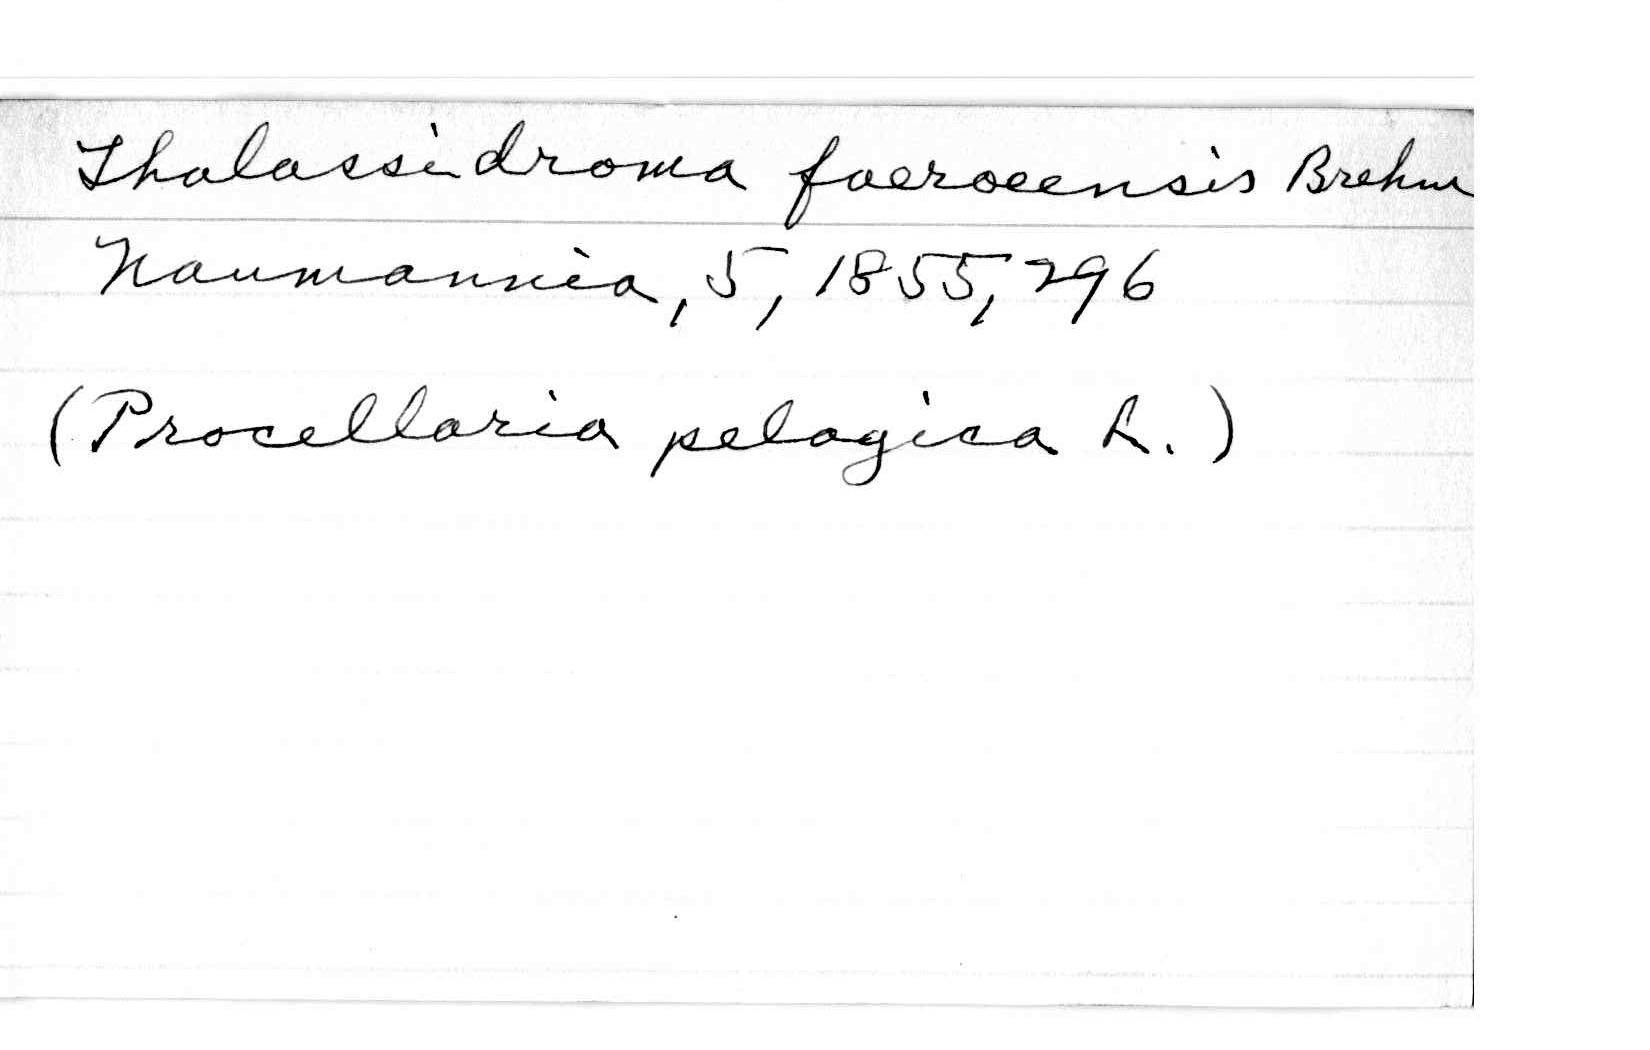 Thalassidroma faeroeensis Brehm
Naumannia, 5, 1855, 296
(Procellaria pelagica L.)